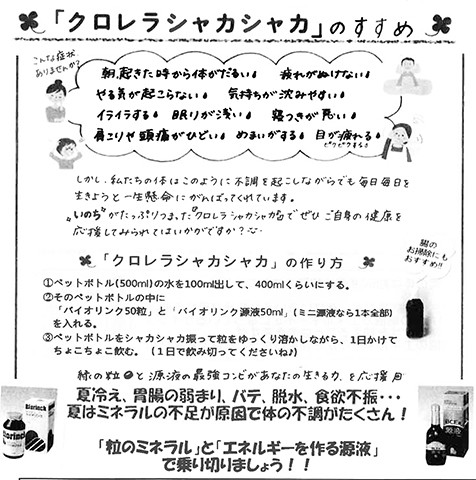 「クロレラシャカシャカ」のすすめ
こんな症状
ありませんか?
朝、起きた時から体がだるい 疲れがぬけない
やる気が起こらない 気持ちが沈みやすい
イライラする 眠りが浅い 寝つきが悪い
肩こりや頭痛がひどい めまいがする 目が疲れる
ピクピクする
しかし、私たちの体はこのように不調を起こしながらでも毎日毎日を
生きようと一生懸命にがんばってくれています。
"いのち"がたっぷりつまった『クロレラシャカシャカ』でぜひご自身の健康を
応援してみられてはいかがですか?
腸の
お掃除にも
おすすめ!!
「クロレラシャカシャカ」の作り方
①ペットボトル(500ml)の水を100ml出して、400mlくらいにする。
②そのペットボトルの中に
「バイオリンク50粒」と「バイオリンク源液50ml」(ミニ源液なら1本全部)
を入れる。
③ペットボトルをシャカシャカ振って粒をゆっくり溶かしながら、1日かけて
ちょこちょこ飲む。(1日で飲み切ってくださいね♪)
緑の粒と源液の最強コンビがあなたの生きる力を応援
夏冷え、胃腸の弱まり、バテ、脱水、食欲不振・・・
夏はミネラルの不足が原因で体の不調がたくさん!
「粒のミネラル」と「エネルギーを作る源液」
で乗り切りましょう!!